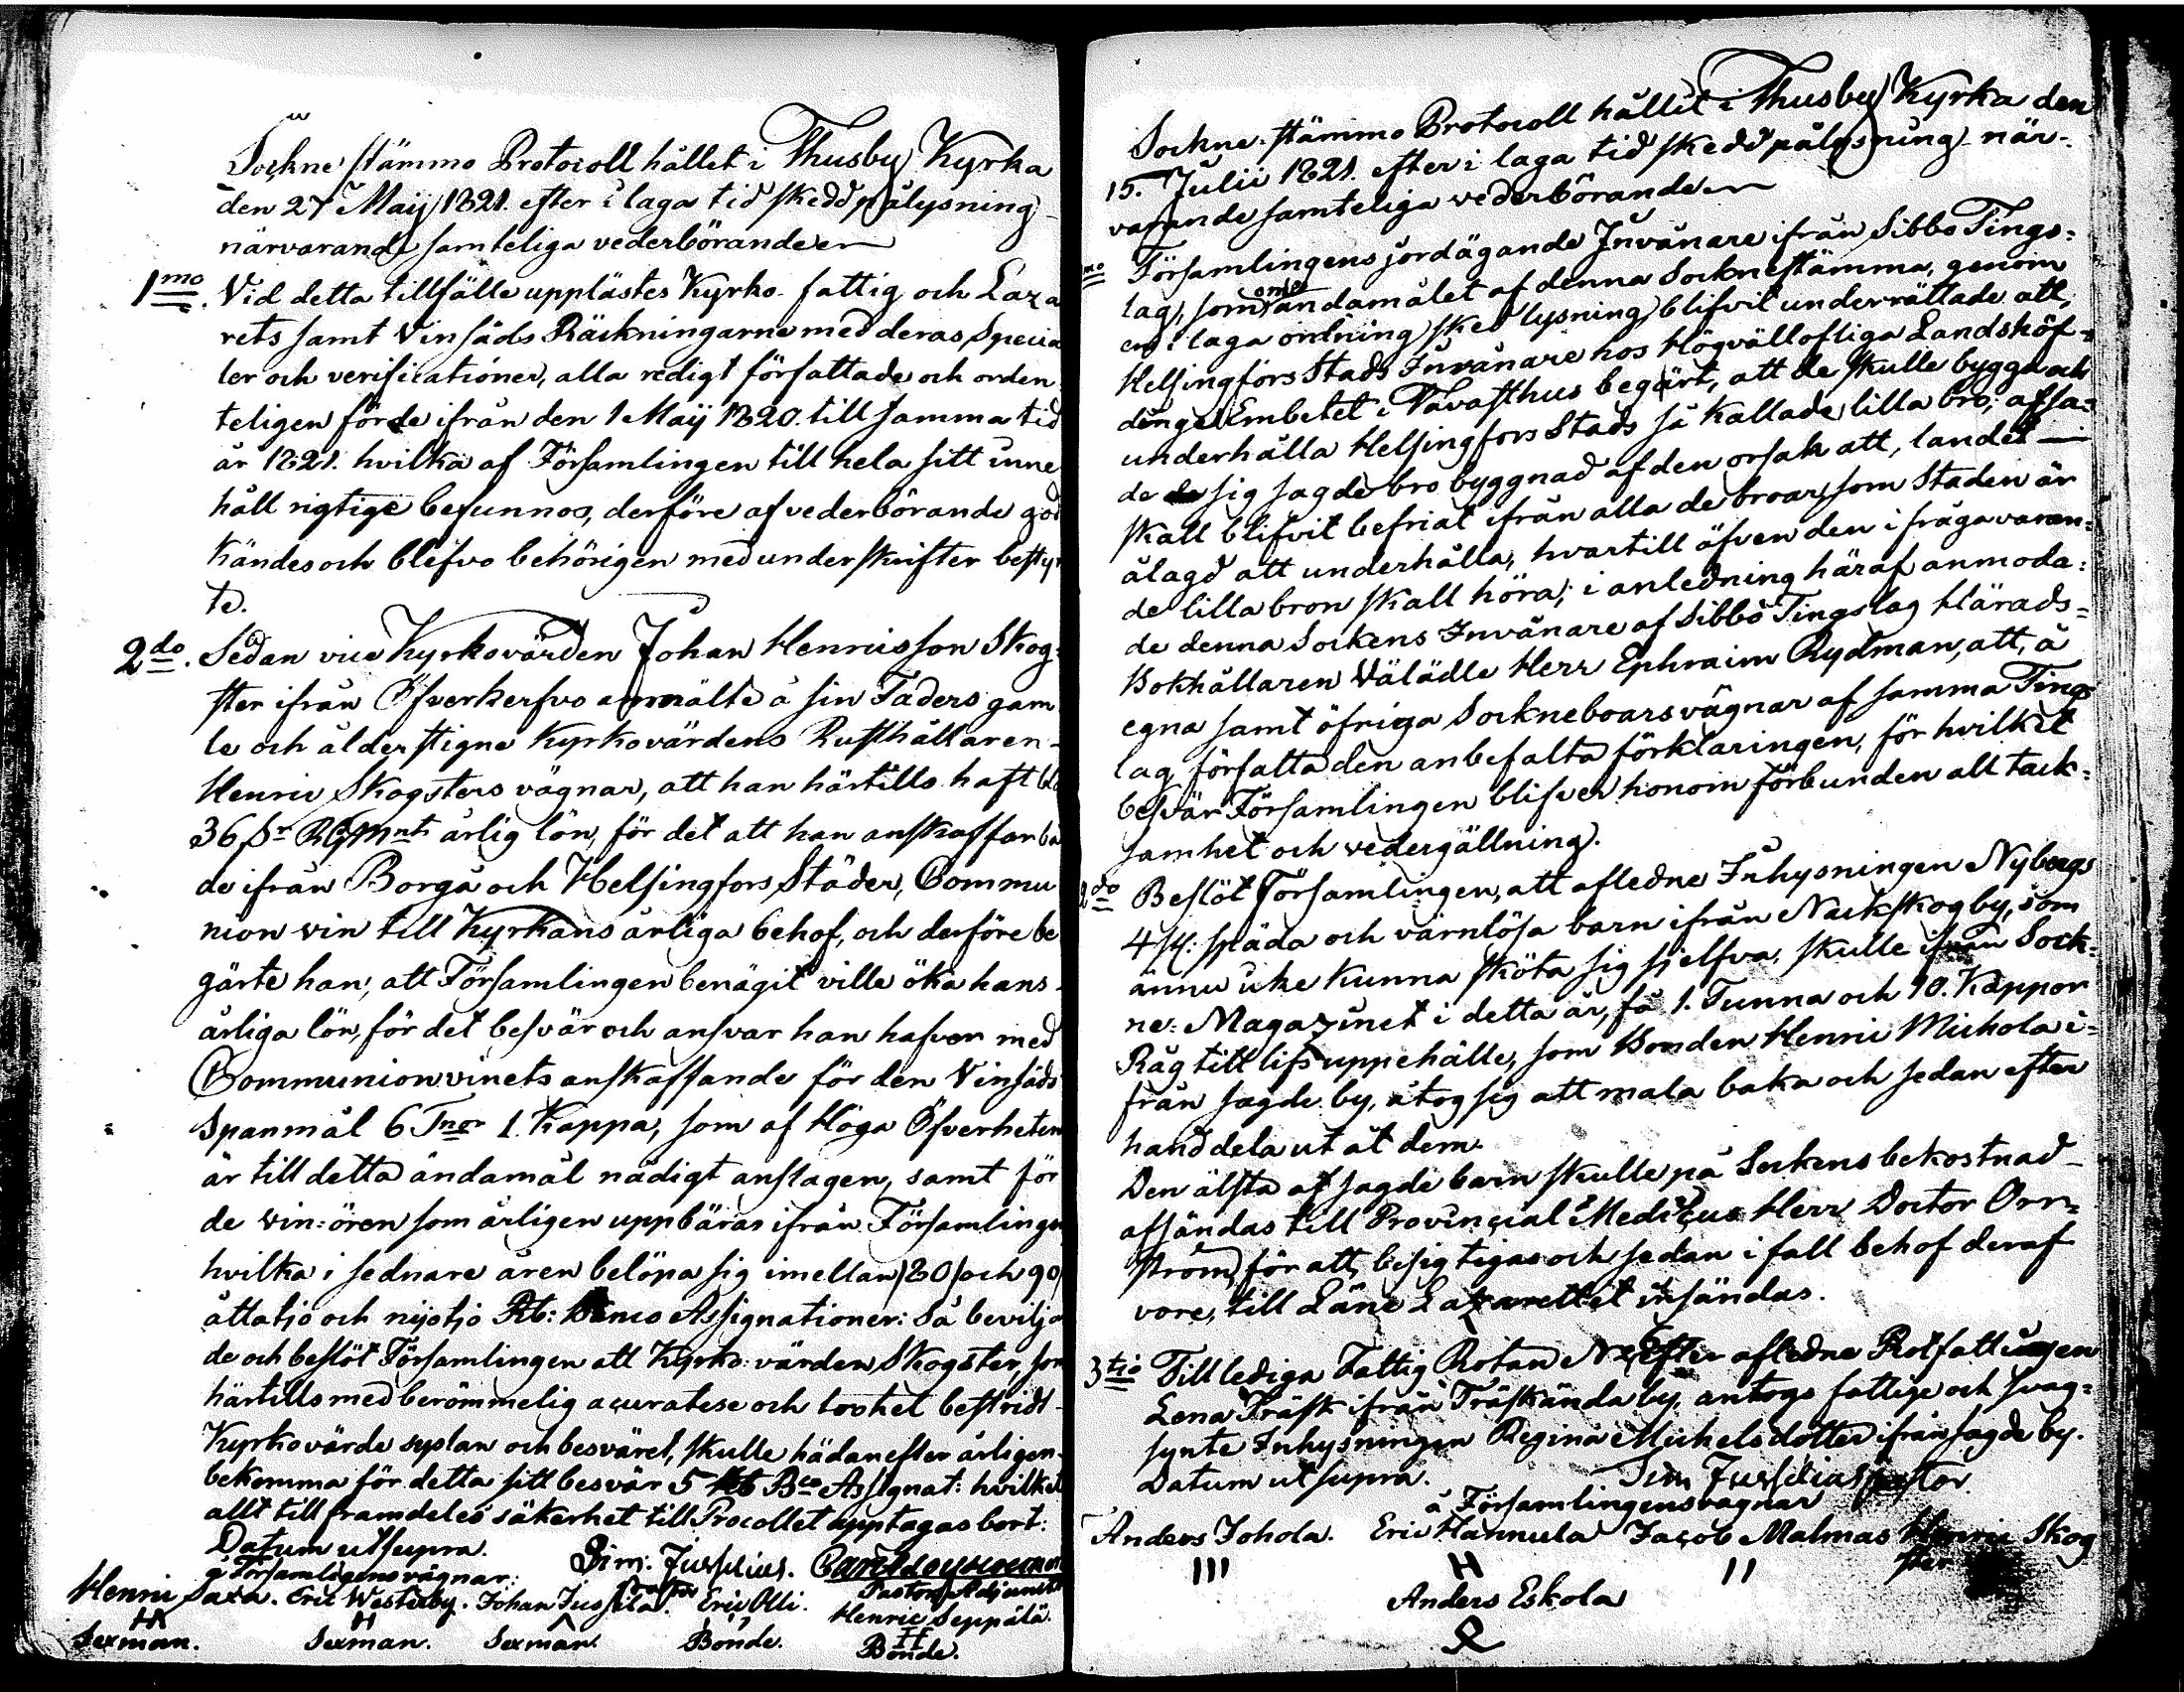 Sockne stämmo Protocoll hållet i Thusby Kyrka
den 27 Maij 1821. efter i laga tid skedd pålysning
närvarande samteliga vederbörande
1mo. Vid detta tillfälle upplästes Kyrko- fattig och Laza
rets samt Vinsäds Räkningarne med deras Specia
ler och verificationer, alla redigt författade och orden
teligen förde ifrån den 1 Maij 1820. till samma tid
år 1821. hvilka af Församlingen till hela sitt inne
håll rigtige befunnos, derföre af vederbörande god
kändes och blefvo behörigen med underskrifter bestyr
te.
2do. Sedan vice Kyrkovärden Johan Henricsson Skog-
ster ifrån Öfverkerfvo anmälte å sin Faders gam
le och ålderstigne Kyrkovärdens Rusthållaren
Henric Skogsters vägnar, att han härtills haft
36 årlig lön, för det att han anskaffar bå
de ifrån Borgå och Helsingfors Städer, Commu
nion vin till Kyrkans årliga behof, och derföre be
gärte han, att Församlingen benägit ville öka hans
årliga lön, för det besvär och ansvar han hafver med
Communionvinets anskaffande för den Vinsäds
Spanmål 6 Tnor 1. Kappa, som af Höga Öfverheten
är till detta ändamål nådigt anslagen, samt för
de vin-ören som årligen uppbäras ifrån Församlingen
hvilka i sednare åren belöpa sig imellan 80 och 90
åttatio och nijotjo Rb: Banco Assignationer: Så bevilja
de och beslöt Församlingen att Kyrko-värden Skogster, som
härtills med berömmelig acuratese och trohet bestridt
Kyrkovärde syslan och besväret, skulle hädanefter årligen
bekomma för detta sitt besvär 5 Rb Bco Assignat: hvilket
allt till framdeles säkerhet till Procollet upptagas bort:
Datum ut supra. Sim. Jusselius.
å Församlingens vägnar: Pastor Pastors Adjunct
Henric Saxa. Eric Westerby. Johan Jussila. Eric Olli. Henric Seppälä.
Sexman. Sexman. Sexman. Bonde. Bonde.
Sockne-stämmo Protocoll hållit i Thusby Kyrka den
15. Julii 1821. efter i laga tid skedd pålysning när-
varande samteliga vederbörande
mo Församlingens jordägande Invånare ifrån Sibbo Tings-
lag, som om ändamålet af denna Socknestämma, genom
en i laga ordning sked lysning blifvit underrättade att,
Helsingfors Stads Invånare hos Högvällofliga Landshöf-
dinge Embetet i Tavasthus begärt, att de skulle bygga och
underhålla Helsingfors Stads så kallade lilla bro; afsa-
de sig sagde bro byggnad af den orsak att, landet
skall blifvit befriat ifrån alla de broar, som Staden är
ålagd att underhålla, hvartill äfven den i fråga varan-
de lilla bron skall höra; i anledning häraf anmoda-
de denna Sockens Invånare af Sibbo Tingslag Härads-
Bokhållaren Välädle Herr Ephraim Rydman, att, å
egna samt öfriga Sockneboars vägnar af samma Tings
lag författa den anbefalta förklaringen, för hvilket
besvär Församlingen blifver honom förbunden all tack-
samhet och vedergällning.
2do Beslöt Församlingen, att afledne Inhysningen Nybergs
4 st: späda och värnlösa barn ifrån Nackskog by, som
ännu icke kunna sköta sig sjelfva, skulle ifrån Sock-
ne-Magazinet i detta år, få 1. Tunna och 10. Kappor
Råg till lifsuppehälle, som Bonden Henric Mickola i-
från sagde by, åtog sig att mala baka och sedan efter
hand dela ut åt dem.
Den älsta af sagde barn skulle på Sockens bekostnad
afsändas till Provincial Medicus Herr Doctor Orr-
ström, för att, besigtigas och sedan i fall behof deraf
vore, till Läne Lazarettet insändas.
3tio Till lediga Fattig Rotan efter afledne Rotfattigen
Lena Träsk ifrån Träskända by, antogs fattige och svag-
synte Inhysningen Regina Michelsdotter ifrån sagde by.
Datum ut supra. Sim Jusselius pastor.
å Församlingens vägnar
Anders Johola. Eric Hannula Jacob Malmas Henric Skog
ster
Anders Eskola